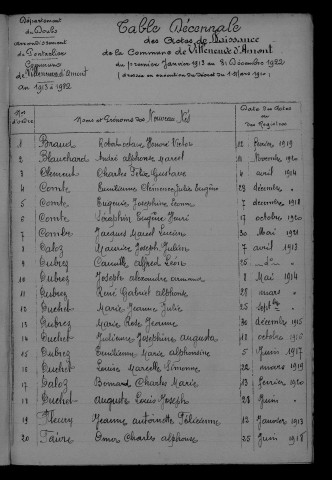 Département
du Doubs
arrondissement
de Pontarlier
Commune
de Villeneuve d'Amont
An 1913 à 1922
Table Décennale
des Actes de Naissance
de la Commune de Villeneuve d'Amont
du premier Janvier 1913 au 31 Décembre 1922
(dressée en exécution du Décret du 1 Mars 1920)
Nos d'ordre Noms et Prénoms des Nouveau-Nés Date des Actes ou des Registres
1 Braud Robert octave Honoré Victor 12 Février 1919
2 Blanchard André alphonse Marcel 11 Novembre 1920
3 Clement Charles Félix Gustave 4 avril 1914
4 Comte Emilienne Clémence Julie Eugénie 28 décembre "
5 Comte Eugenie Josephine 7 décembre 1918
6 Comte Séraphin Eugène Henri 17 octobre 1920
7 Combe Jacques Marcel Lucien 30 Mai 1921
8 Maurice Joseph Julien 7 avril 1913
9 Cubrez Camille alfred Léon 25 - d° -
10 Cubrez Joseph alexandre armand 8 Mai 1914
11 Cubrez René Gabriel alphonse 28 mars "
12 Cuchet Marie Jeanne Julie 25 Septbre "
13 Cubrez Marie Rose Jeanne 30 décembre 1915
14 Cuchet Julienne Joséphine augusta 18 octobre 1916
15 Cubrez Emilienne Marie alphonsine 5 Juin 1917
16 Cuchet Louise Marcelle Simonne 22 mars 1919
17 Bernard Charles Marie 13 Février 1920
18 Cuchet Auguste Louis Joseph 28 Juin "
19 Fleury Jeanne antoinette Félicienne 12 Janvier 1913
20 Faivre Omer Charles alphonse 25 Juin 1918